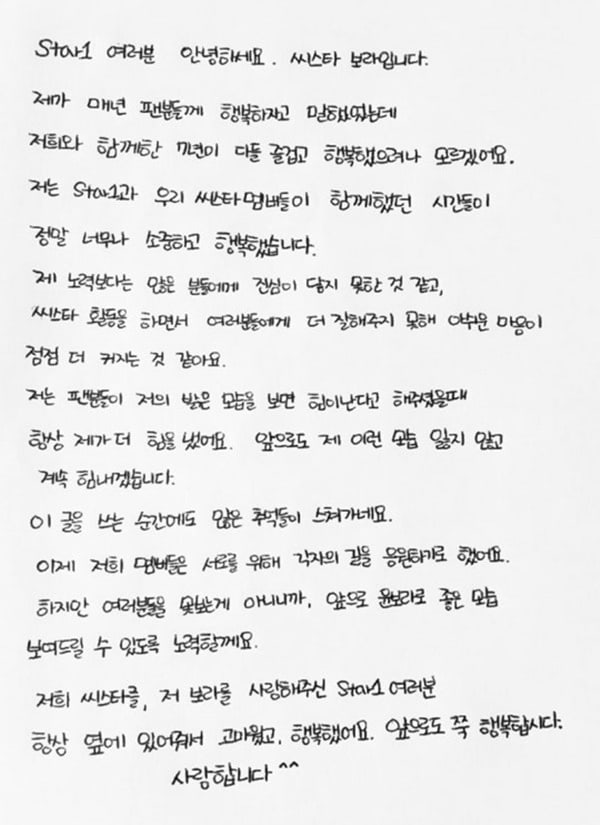 Star1 여러분 안녕하세요. 씨스타 보라입니다.
제가 매년 팬분들께 행복하자고 말했었는데
저희와 함께한 7년이 다들 즐겁고 행복했으려나 모르겠어요.
저는 Star1과 우리 씨스타멤버들이 함께했던 시간들이
정말 너무나 소중하고 행복했습니다.
제 노력보다는 많은 분들에게 진심이 닿지 못한 것 같고,
씨스타 활동을 하면서 여러분들에게 더 잘해주지 못해 아쉬운 마음이
점점 더 커지는 것 같아요.
저는 팬분들이 저의 밝은 모습을 보면 힘이난다고 해주셨을때
항상 제가 더 힘을 냈어요. 앞으로도 제 이런 모습 잃지 않고
계속 힘내겠습니다.
이 글을 쓰는 순간에도 많은 추억들이 스쳐가네요.
이제 저희 멤버들은 서로를 위해 각자의 길을 응원하기로 했어요.
하지만 여러분들을 못보는게 아니니까, 앞으로 윤보라로 좋은 모습
보여드릴 수 있도록 노력할게요.
저희 씨스타를, 저 보라를 사랑해주신 Star1 여러분
항상 옆에 있어줘서 고마웠고, 행복했어요. 앞으로도 쭉 행복합시다.
사랑합니다 ^^